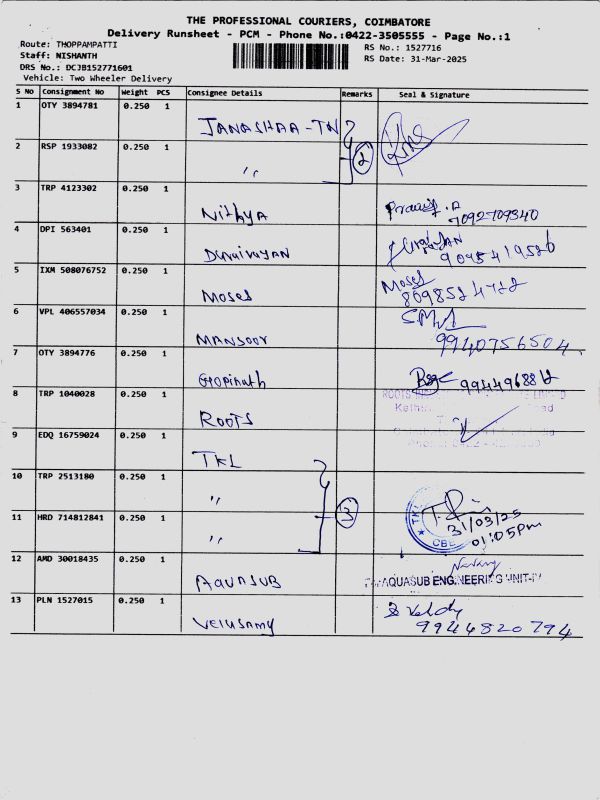 THE PROFESSIONAL COURIERS, COIMBATORE
Delivery Runsheet - PCM - Phone No.:0422-3505555 - Page No.:1
Route: THOPPAMPATTI
RS No.: 1527716
Staff: NISHANTH
RS Date: 31-Mar-2025
DRS No.: DCJB152771601
Vehicle: Two Wheeler Delivery
S No Consignment No Weight PCS Consignee Details Remarks Seal & Signature
1 OTY 3894781 0.250 1 JANASHAA-TN
2 RSP 1933082 0.250 1 〃 2
3 TRP 4123302 0.250 1 Nithya 7092709340
4 DPI 563401 0.250 1 Duraivayan
5 IXM 508076752 0.250 1 Moses Moses
6 VPL 406557034 0.250 1 MANSOOR 9940756504
7 OTY 3894776 0.250 1 Gopinath
8 TRP 1040028 0.250 1 ROOTS
9 EDQ 16759024 0.250 1 TKL
10 TRP 2513180 0.250 1 〃
11 HRD 714812841 0.250 1 〃 3 TKL CBE 31/03/25 01:05pm
12 AMD 30018435 0.250 1 AQUASUB AQUASUB ENGINEERING UNIT-IV
13 PLN 1527015 0.250 1 Velusamy 9944820794